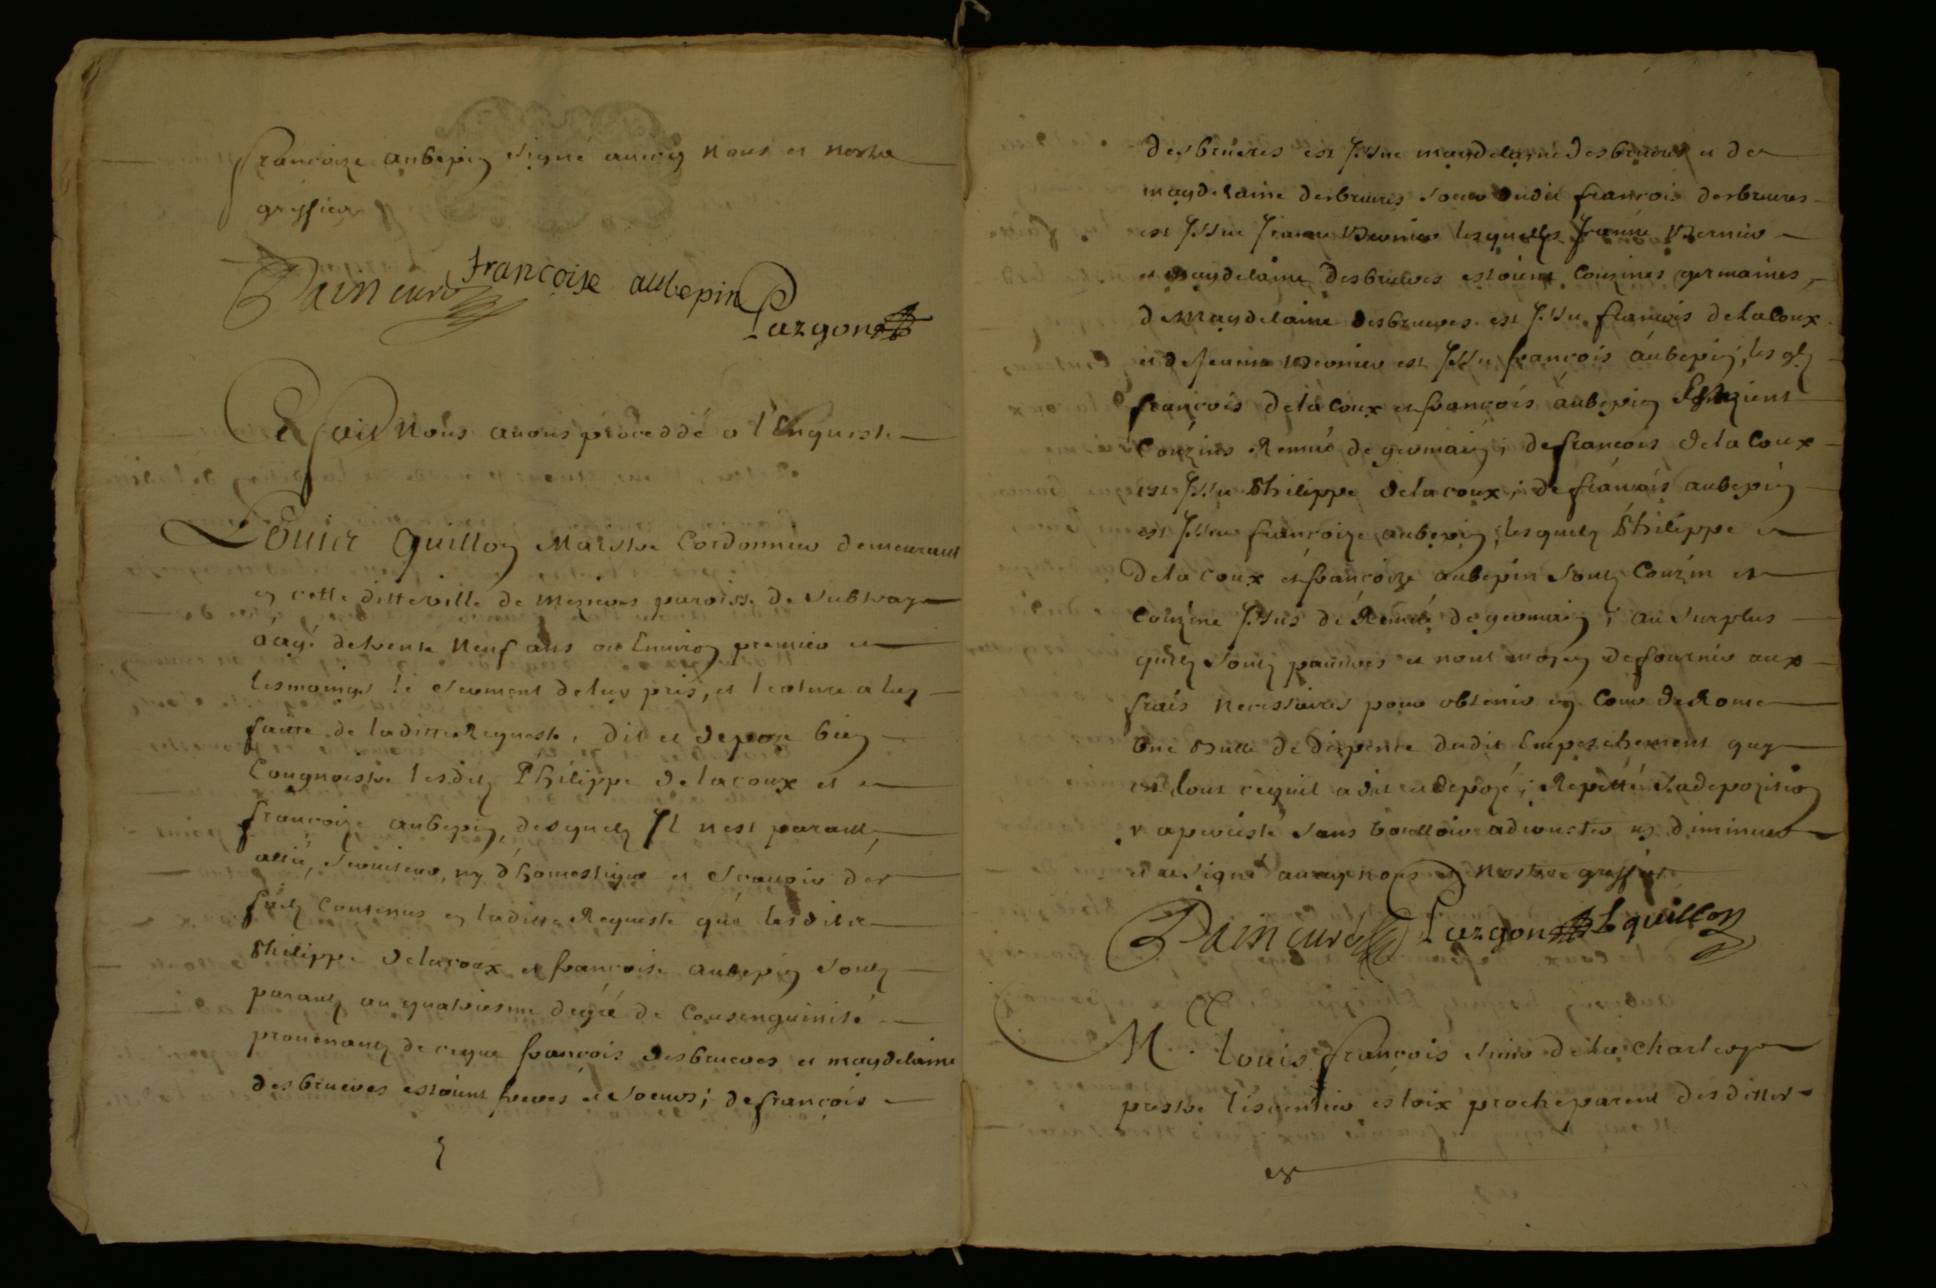 francoize aubepin signé avecq nous et nostre
greffier
Paincuré francoise aubepin
Lazgon
Ce fait Nous avons proceddé a l'Enqueste
Louis Guillon Maistre Cordonnier demeurant
en cette ditte ville de Mezieres paroisse de
aagé de trente Neuf ans ou Environ premier
tesmoing le serment de luy pris, et lecture a luy
faitte de laditte Requeste, dit et depose bien
Congnoistre lesditz Philippe delacoux et
francoize aubepin, desquelz Il nest paraut,
allié, serviteur, ny dhomestique et scavoir des
faitz contenus en laditte Requeste que lesdits
Philippe delacoux et francoise aubepin sont
parantz au quatriesme degré de Consenguinité
provenantz de ceque francois desbrueres et magdelaine
desbrueres estoient freres et soeurs; de francois
desbrueres est Issue magdelaine desbrueres et de
magdelaine desbrueres soeur dudit francois desbrueres
est Issue Jeanne Vernier lesquelles Jeanne Vernier
et magdelaine desbrueres estoient Couzines germaines,
de Magdelaine desbrueres est Issu francois delaCoux
et de Jeanne Vernier est Issu francois aubepin, lesqlz
francois delacoux et francois aubepin Estoient
Couzins Remué de germain; de francois delaCoux
est Issu Philippe delacoux; de francois aubepin
est Issue francoize aubepin, lesquelz Philippe
delacoux et francoize aubepin sont Couzin et
Couzine Issus de Remué de germain; au surplus
quilz sont pauvres et nont moyen de fournir aux
frais necessaires pour obtenir en Cour de Rome
Une Bulle de dispence dudit Empeschement quy
est tout cequil a dit et depozé; Repetté sa depozition
y a percisté sans voulloir adiouster ny diminuer
et a signé avecq nous et Nostre greffier
Paincuré Lazgon L guillon
M.e Louis francois de la
prestre proche parent desdittes